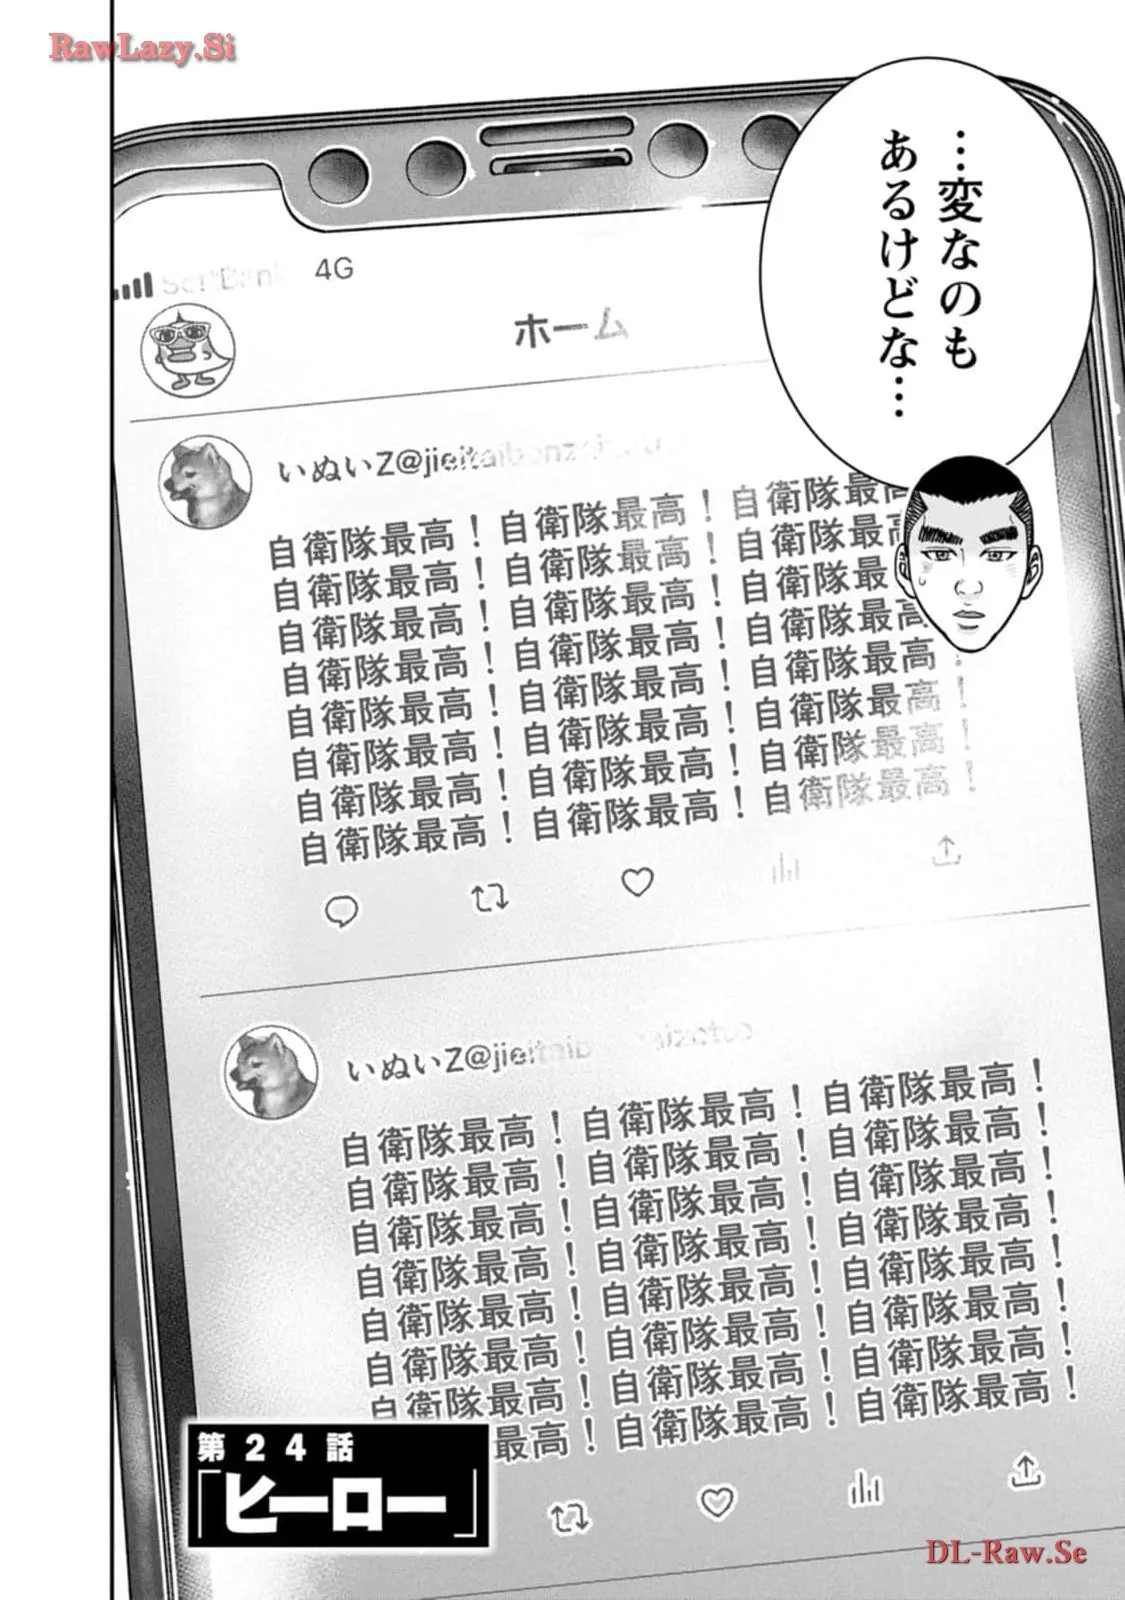 RawLazy.Si
…変なのも
あるけどな…
4G
ホーム
いぬいZ@jieitaibanz
自衛隊最高！自衛隊最高！自衛隊最高
自衛隊最高！自衛隊最高！自衛隊最
自衛隊最高！自衛隊最高！自衛隊最
自衛隊最高！自衛隊最高！自衛隊最高
自衛隊最高！自衛隊最高！自衛隊最高！
自衛隊最高！自衛隊最高！自衛隊最高！
自衛隊最高！自衛隊最高！自衛隊最高！
自衛隊最高！自衛隊最高！自衛隊最高！
いぬいZ@jieitai
自衛隊最高！自衛隊最高！自衛隊最高！
自衛隊最高！自衛隊最高！自衛隊最高！
自衛隊最高！自衛隊最高！自衛隊最高！
自衛隊最高！自衛隊最高！自衛隊最高！
自衛隊最高！自衛隊最高！自衛隊最高！
自衛隊最高！自衛隊最高！自衛隊最高！
自衛隊最高！自衛隊最高！自衛隊最高！
最高！自衛隊最高！自衛隊最高！
第24話
「ヒーロー」
DL-Raw.Se